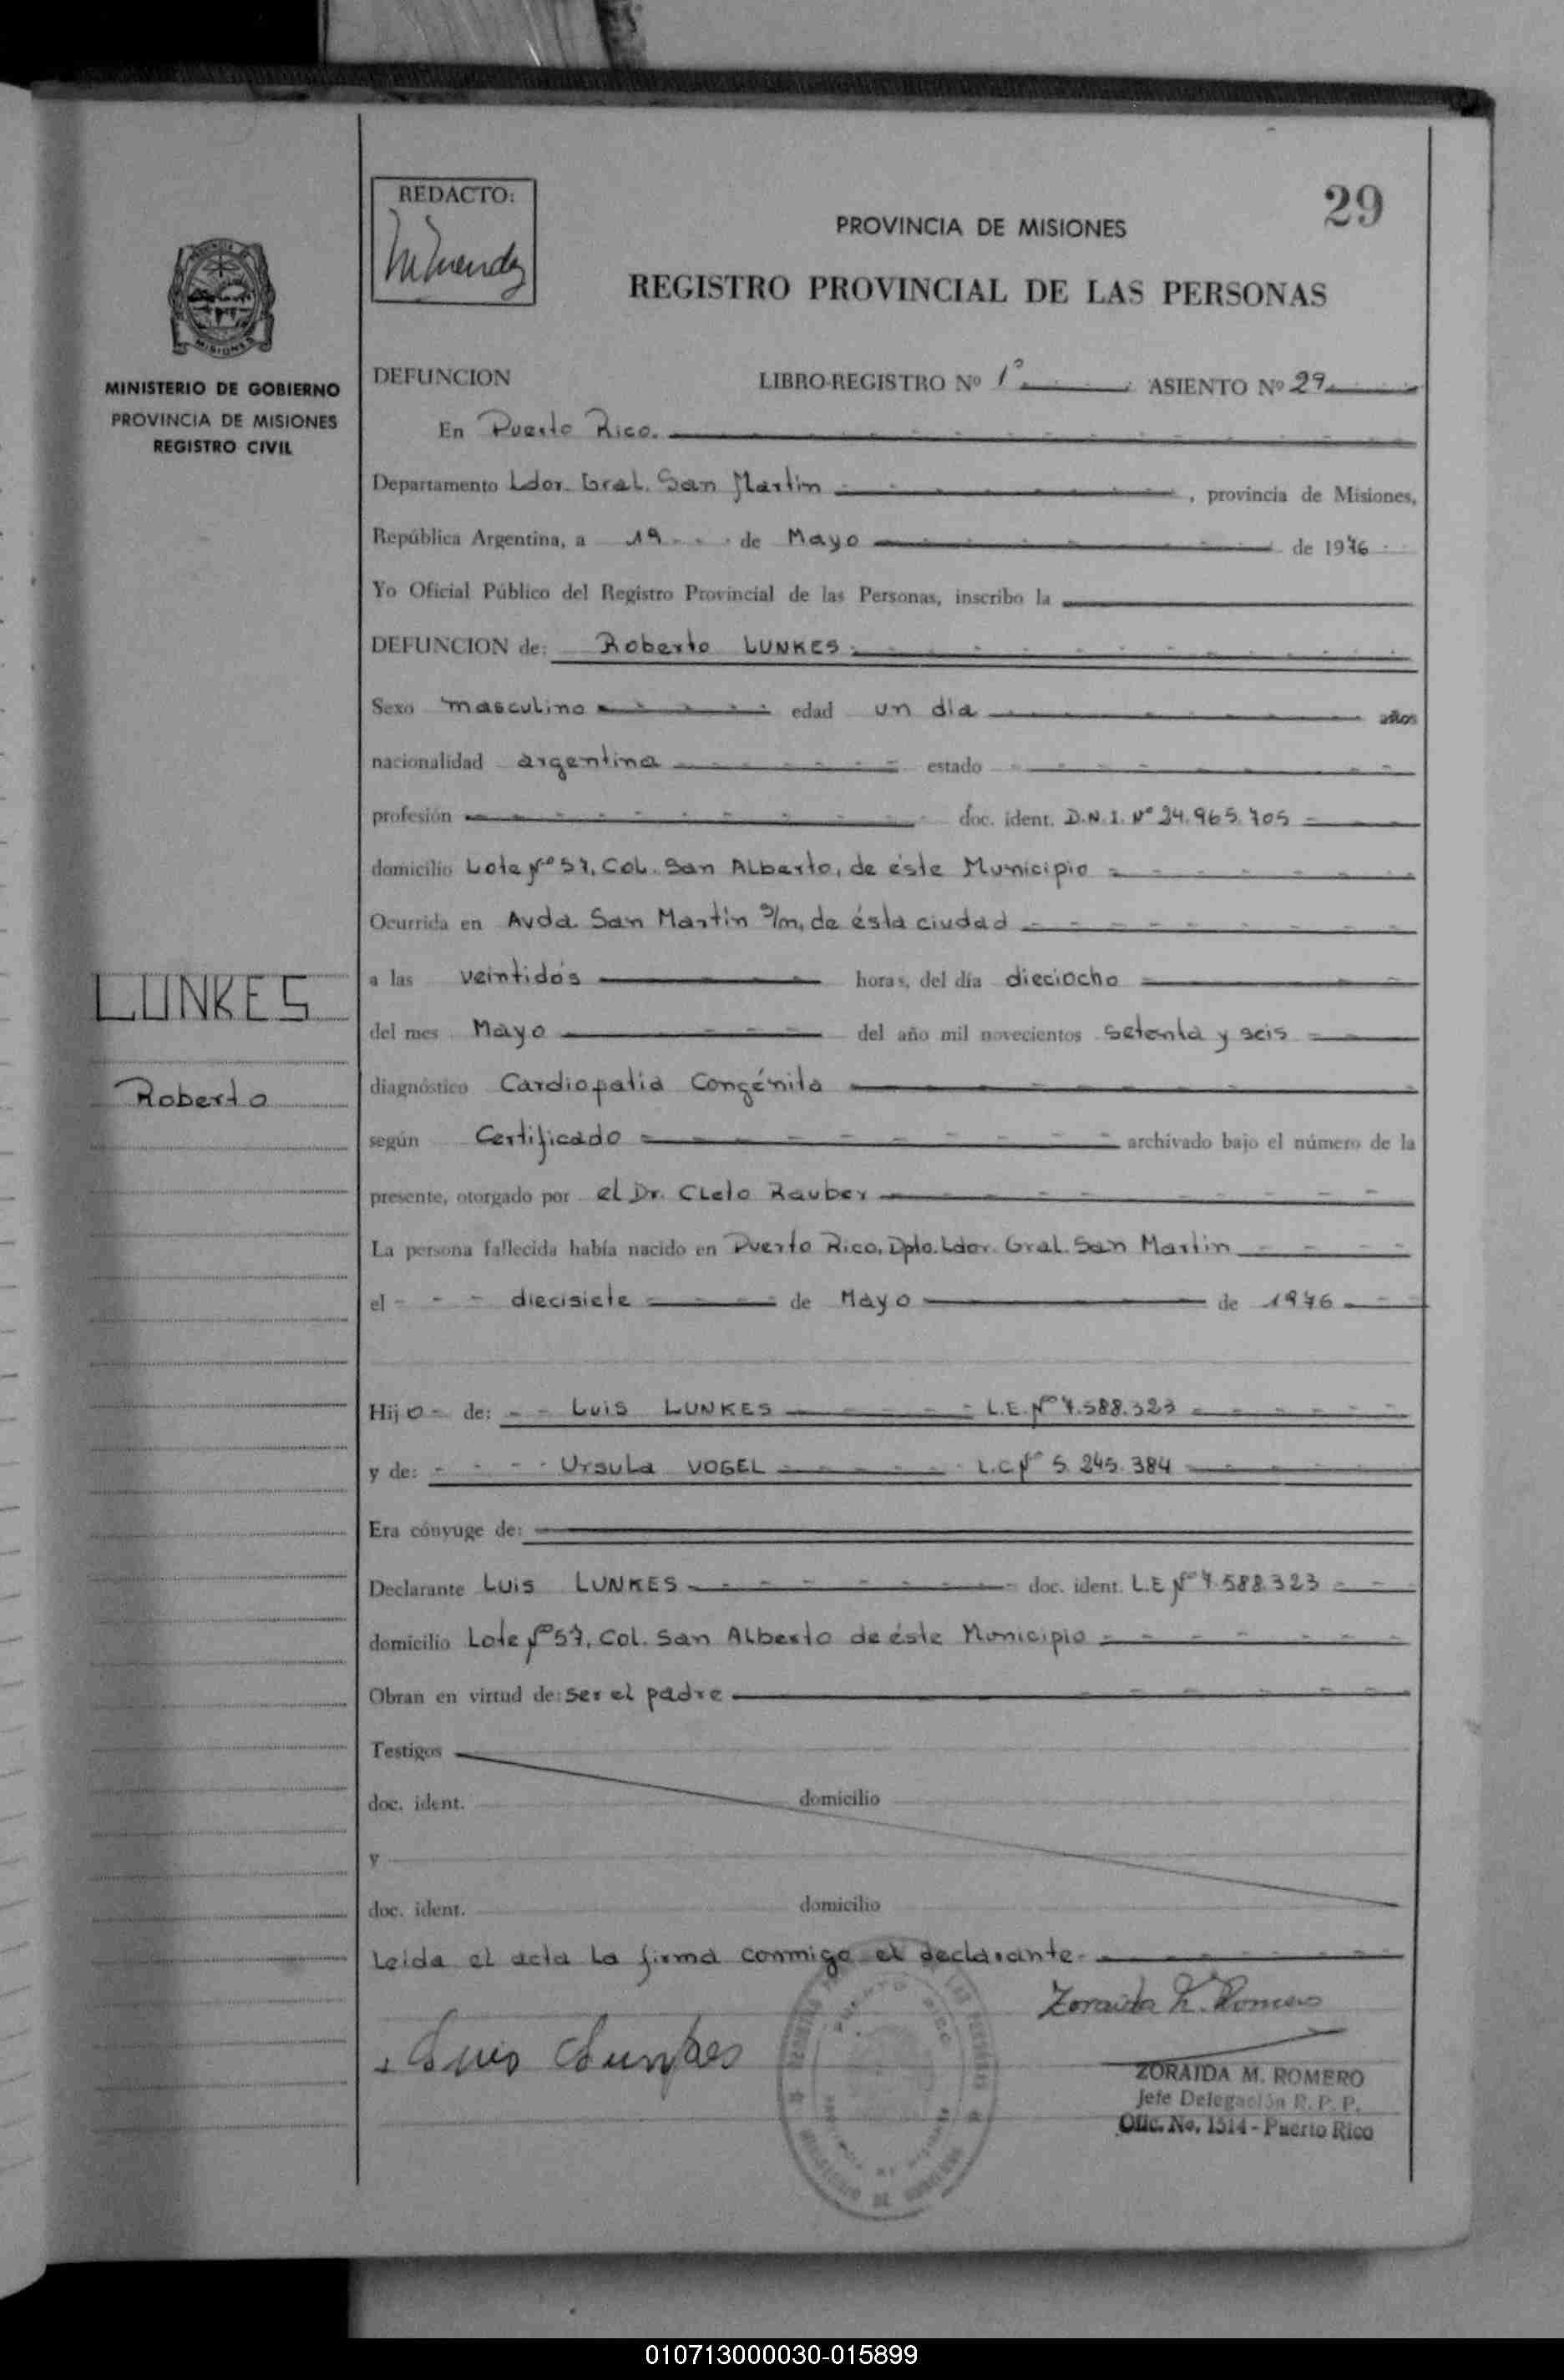 29
REDACTO:
PROVINCIA DE MISIONES
REGISTRO PROVINCIAL DE LAS PERSONAS
MISIONES
MINISTERIO DE GOBIERNO
PROVINCIA DE MISIONES
REGISTRO CIVIL
DEFUNCION LIBRO-REGISTRO Nº 1º ASIENTO Nº 29
En Puerto Rico.
Departamento Ldor. Gral. San Martin, provincia de Misiones,
República Argentina, a 19 de Mayo de 1976
Yo Oficial Público del Registro Provincial de las Personas, inscribo la
DEFUNCION de: Roberto LUNKES
Sexo masculino edad un día años
nacionalidad argentina estado
profesión doc. ident. D.N.I. Nº 24.965.705
domicilio Lote Nº 57, Col. San Alberto, de éste Municipio
Ocurrida en Avda. San Martín s/m, de ésta ciudad
a las veintidós horas, del día dieciocho
LUNKES
del mes Mayo del año mil novecientos setenta y seis
Roberto
diagnóstico Cardiopatia Congénita
según Certificado archivado bajo el número de la
presente, otorgado por el Dr. Cleto Rauber
La persona fallecida había nacido en Puerto Rico, Dpto. Ldor. Gral. San Martin
el diecisiete de Mayo de 1976
Hijo de: Luis LUNKES L.E. Nº 7.588.323
y de: Ursula VOGEL L.C. Nº 5.245.384
Era cónyuge de:
Declarante Luis LUNKES doc. ident. L.E Nº 7.588.323
domicilio Lote Nº 57, Col. San Alberto de éste Municipio
Obran en virtud de: ser el padre
Testigos
doc. ident. domicilio
y
doc. ident. domicilio
Leida el acta la firma conmigo el declarante
Zoraida M. Romero
Luis Lunkes
ZORAIDA M. ROMERO
Jefe Delegación R. P. P.
Ofic. No. 1514 - Puerto Rico
010713000030-015899